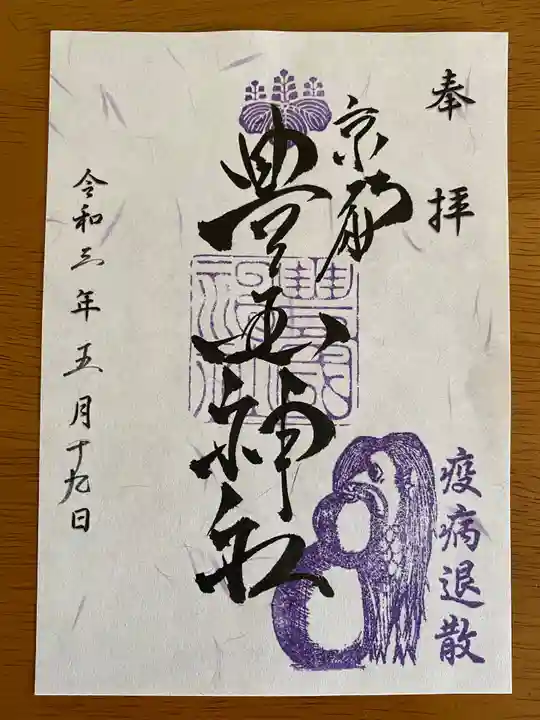 奉拝
疫病退散
京都
豊国神社
豐國
神社
令和三年五月十九日